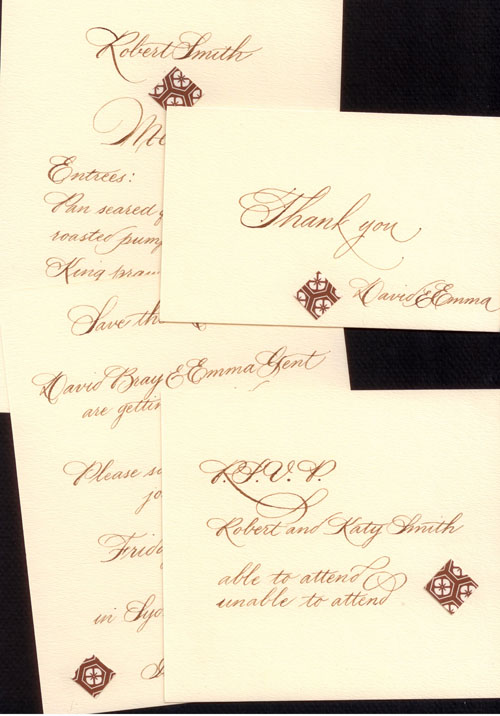 Robert Smith
Entrées:
Pan seared
roasted
King
Thank you
David & Emma
Save
David Bray & Emma Gent
are
Please
R.S.V.P.
Robert and Katy Smith
able to attend
unable to attend
in